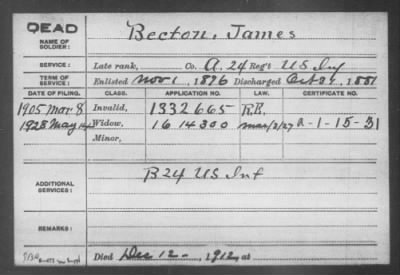 DEAD
NAME OF SOLDIER: Becton, James
SERVICE: Late rank, Co. A, 24 Reg't US Inf
TERM OF SERVICE: Enlisted Nov 1, 1876 Discharged Oct 31, 1881
DATE OF FILING. CLASS. APPLICATION NO. LAW. CERTIFICATE NO.
1905 Mar 8 Invalid, 1332665 R.R.
1928 May Widow, 1614300 Mar/3/27 a-1-15-31
Minor,
ADDITIONAL SERVICES: B 24 US Inf
REMARKS:
Died Dec 12 1912, at